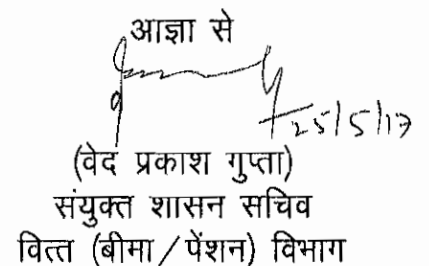 आज्ञा से
25/5/17
(वेद प्रकाश गुप्ता)
संयुक्त शासन सचिव
वित्त (बीमा/पेंशन) विभाग